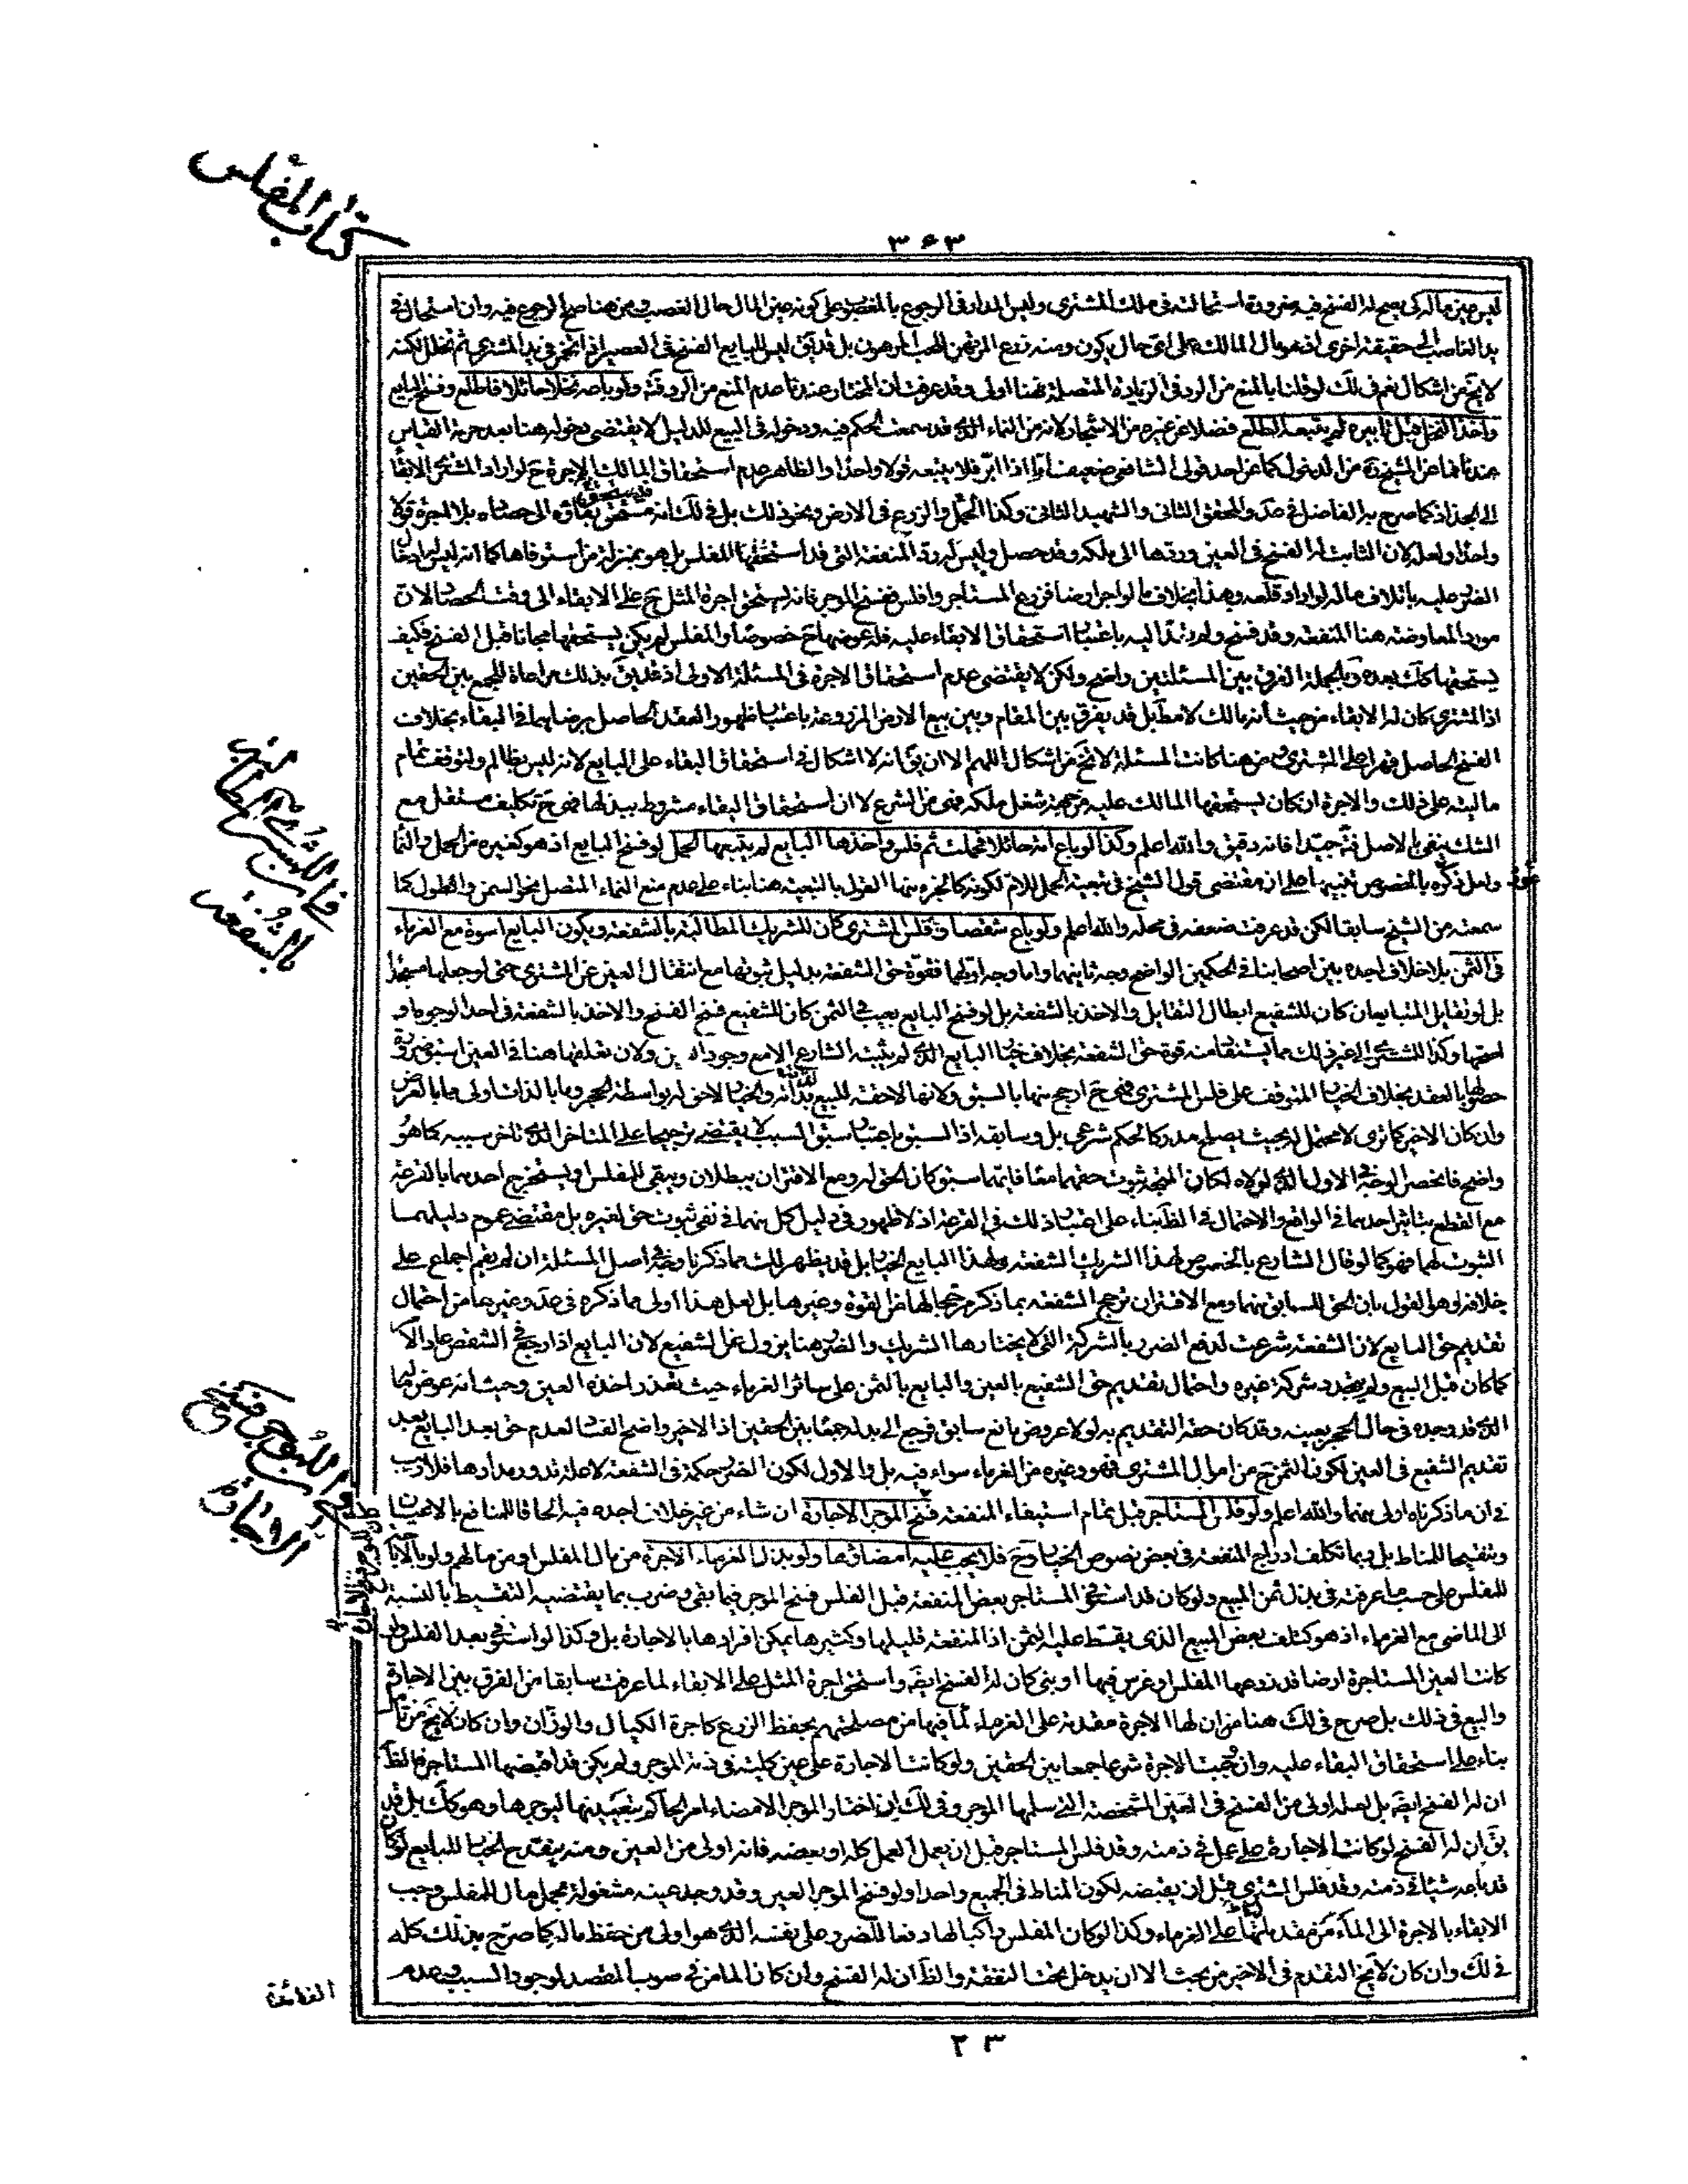 كتاب المفلس
٣٤٣
ليس عين ماله كي يصح له الفسخ فيه ضرورة استحالته في ملك المشتري وليس المدار في الرجوع بالمغصوب على كونه عين المال حال الغصب ومن هنا صح الرجوع فيه وان استحال في
يد الغاصب الى حقيقة اخرى اذ هو مال المالك على اي حال يكون ومنه زرع المرتهن الحب المرهون بل قد يق ليس للبايع الفسخ في العصير اذا تخمر في يد المشتري ثم تخلل لكنه
لا يخ من اشكال نعم في لك لو قلنا بالمنع من الرد في الزيادة المتصلة فهنا اولى وقد عرفت ان المختار عندنا عدم المنع من الرد فت ولو باعه نخلا حائلا فاطلع وفسخ البايع
واخذ النخل قبل تابيره لم يتبعه الطلع فضلا عن غيره من الاشجار لانه من النماء الذي قد سمعت الحكم فيه ودخوله في البيع للدليل لا يقتضي دخوله هنا بعد حرمة القياس
عندنا فما عن الشيخ من الدخول كما عن احد قولي الشافعي ضعيف اما اذا ابر فلا يتبعه قولا واحدا والظاهر عدم استحقاق المالك الاجرة ح لو اراد المشتري الابقاء
الى الجذاذ كما صرح به الفاضل في عد والمحقق الثاني والشهيد الثاني وكذا الحمل والزرع في الارض ونحو ذلك بل في لك انه مستحق بقاؤه الى حصاده بلا اجرة قولا
واحدا ولعله لان الثابت له الفسخ في العين وردها الى ملكه وقد حصل وليس له رد المنفعة التي قد استحقها المفلس بل هو بمنزلة من استوفاها كما انه ليس له ادخال
الضرر عليه باتلاف ماله لو اراد قلعه وهذا بخلاف ما لو اجر ارضا فزرع المستاجر وافلس ففسخ الموجر فانه يستحق اجرة المثل ح على الابقاء الى وقت الحصاد لان
مورد المعاوضة هنا المنفعة وقد فسخ ولم ترد اليه باعتبار استحقاق الابقاء عليه فله عوضها ح خصوصا والمفلس لم يكن يستحقها مجانا قبل الفسخ فكيف
يستحقها كك بعده وبالجملة الفرق بين المسئلتين واضح ولكن لا يقتضي عدم استحقاق الاجرة في المسئلة الاولى اذ قد يق بذلك مراعاة للجمع بين الحقين
اذ المشتري كان له الابقاء من حيث انه مالك لا مط بل قد يفرق بين المقام وبين بيع الارض المزروعة باعتبار ظهور العقد الحاصل برضاهما في البقاء بخلاف
الفسخ الحاصل قهرا على المشتري ومن هنا كانت المسئلة لا تخ من اشكال اللهم الا ان يق انه لا اشكال في استحقاق البقاء على البايع لانه ليس بظالم ولتوقف تمام
ماليته على ذلك والاجرة ان كان يستحقها المالك عليه من جهة شغل ملكه فهي من الشرع لا ان استحقاق البقاء مشروط ببذلها فهي ح تكليف مستقل مع
الشك ينفى بالاصل فت جيدا فانه دقيق والله اعلم وكذا لو باع امة حائلا فحملت ثم فلس واخذها البايع لم يتبعها الحمل لو فسخ البايع اذ هو كغيره من الحمل والنماء
ولعل ذكره بالخصوص تنبيها على ان مقتضى قول الشيخ في تبعية الحمل للام لكونه كالجزء منها القول بالتبعية هنا بناء على عدم منع النماء المتصل نحو السمن والطول كما
سمعته من الشيخ سابقا لكن قد عرفت ضعفه في محله والله اعلم ولو باع شقصا وفلس المشتري كان للشريك المطالبة بالشفعة ويكون البايع اسوة مع الغرماء
في الثمن بلا خلاف اجده بين اصحابنا في الحكمين الواضح وجه ثانيهما واما وجه اولهما فقوة حق الشفعة بدليل ثبوتها مع انتقال العين عن المشتري حتى لو جعلها مسجدا
بل لو تقايل المتبايعان كان للشفيع ابطال التقايل والاخذ بالشفعة بل لو فسخ البايع بعيب في الثمن كان للشفيع فسخ الفسخ والاخذ بالشفعة في احد الوجوه او
احقها وكذا المشتري الى غير ذلك مما يستفاد منه قوة حق الشفعة بخلاف خيار البايع الذي لم يثبته الشارع الا مع وجود الدين ولان تعلقها هنا في العين اسبق ضرورة
حصولها بالعقد بخلاف الخيار المتوقف على فلس المشتري فهي ح ارجح منها بالسبق ولانها لاحقة للبيع بذاته والخيار لاحق له بواسطة الحجر وما بالذات اولى مما بالعرض
وان كان الاخير كما ترى لا محصل له بحيث يصلح مدركا لحكم شرعي بل وسابقه اذ السبق باعتبار سبق السبب لا يقتضي ترجيحا على المتاخر الذي تاخر سببه كما هو
واضح فانحصر الوجه في الاول الذي لولاه لكان المتجه ثبوت حقهما معا فايهما سبق كان الحق له ومع الاقتران يبطلان ويبقى للمفلس او يستخرج احدهما بالقرعة
مع القطع بتاثير احدهما في الواقع والاحتمال في الظ بناء على اعتبار ذلك في القرعة اذ لا ظهور في دليل كل منهما في نفي ثبوت حق لغيره بل مقتضى عموم دليلهما
الثبوت لهما فهو كما لو قال الشارع بالخصوص لهذا الشريك الشفعة ولهذا البايع الخيار بل قد يظهر لك مما ذكرنا وجه في اصل المسئلة ان لم يقم اجماع على
خلافه وهو القول بان الحق للسابق منهما ومع الاقتران ترجح الشفعة بما ذكر مرجحا لها من القوة وغيرها بل لعل هذا اولى مما ذكره في عد وغيرها من احتمال
تقديم حق البايع لان الشفعة شرعت لدفع الضرر بالشركة التي لا يختارها الشريك والضرر هنا يزول عن الشفيع لان البايع اذا رجع في الشقص عاد الامر
كما كان قبل البيع ولم يتجدد شركة غيره واحتمال تقديم حق الشفيع بالعين والبايع بالثمن على سائر الغرماء حيث تعذر اخذه العين وحيث انه عوض لها
الذي قد وجده في حال الحجر بعينه وقد كان حقه التقديم به لولا عروض مانع سابق فرجع الى بدله جمعا بين الحقين اذ الاخير واضح الفساد لعدم حق بعد البايع بعد
تقديم الشفيع في العين لكون الثمن ح من اموال المشتري فهو وغيره من الغرماء سواء فيه بل والاول لكون الضرر حكمة في الشفعة لا علة تدور مدارها فلا ريب
في ان ما ذكرناه اولى منهما والله اعلم ولو فلس المستاجر قبل تمام استيفاء المنفعة فسخ الموجر الاجارة ان شاء من غير خلاف اجده فيه الحاقا للمنافع بالاعيان
وتنقيحا للمناط بل ربما تكلف ادراج المنفعة في بعض نصوص الخيار وح فلا يجب عليه امضاؤها ولو بذل الغرماء الاجرة من مال المفلس او من مالهم ولو بالاباحة
للمفلس على حسب ما عرفته في بذل ثمن المبيع ولو كان قد استوفى المستاجر بعض المنفعة قبل الفلس فسخ الموجر فيما بقي وضرب بما يقتضيه التقسيط بالنسبة
الى الماضي مع الغرماء اذ هو كتلف بعض المبيع الذي يقسط عليه الثمن اذ المنفعة قليلها وكثيرها يمكن افرادها بالاجارة بل وكذا لو استوفى بعد الفلس ولو
كانت العين المستاجرة ارضا قد زرعها المفلس او غرس فيها او بنى كان له الفسخ ايضا واستحق اجرة المثل على الابقاء لما عرفت سابقا من الفرق بين الاجارة
والبيع في ذلك بل صرح في لك هنا من ان لها الاجرة مقدمة على الغرماء لما فيها من مصلحتهم بحفظ الزرع كاجرة الكيال والوزان وان كان لا يخ من تامل
بناء على استحقاق البقاء عليه وان وجبت الاجرة شرعا جمعا بين الحقين ولو كانت الاجارة على عين كلية في ذمة الموجر ولم يكن قد اقبضها المستاجر فالظ
ان له الفسخ ايضا بل لعله اولى من الفسخ في العين الشخصية التي سلمها الموجر وفي لك ان اختار الموجر الامضاء امر الحاكم بتعيينها ليوجرها وهو كك بل قد
يق ان له الفسخ لو كانت الاجارة على عمل في ذمته وقد فلس المستاجر قبل ان يعمل العمل كله او بعضه فانه اولى من العين ومنه ينقدح الخيار للبايع لو كان
قد باعه شيئا في ذمته وقد فلس المشتري قبل ان يقبضه لكون المناط في الجميع واحدا ولو فسخ الموجر العين وقد وجد عينه مشغولة بحمل مال المفلس وجب
الابقاء بالاجرة الى المامن مقدما لها على الغرماء وكذا لو كان المفلس راكبا لها دفعا للضرر على نفسه الذي هو اولى من حفظ ماله كما صرح بذلك كله
في لك وان كان لا يخ التقدم في الاخير من بحث الا ان يدخل تحت النفقة والظ ان له الفسخ وان كان المامن في صوب المقصد لوجود السبب وعدم
الفائدة
متى فلس المشتري كان للشريك المطالبة بالشفعة
للموجر فسخ الاجارة
٢٣